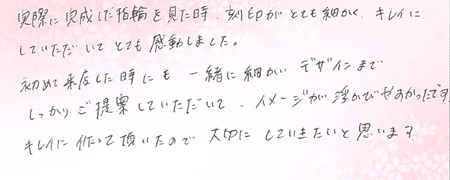 実際に完成した指輪を見た時、刻印がとても細かく、キレイに
していただいてとても感動しました。
初めて来店した時にも一緒に細かいデザインまで
しっかりご提案していただいて、イメージが浮かびやすかったです
キレイに作って頂いたので大切にしていきたいと思います